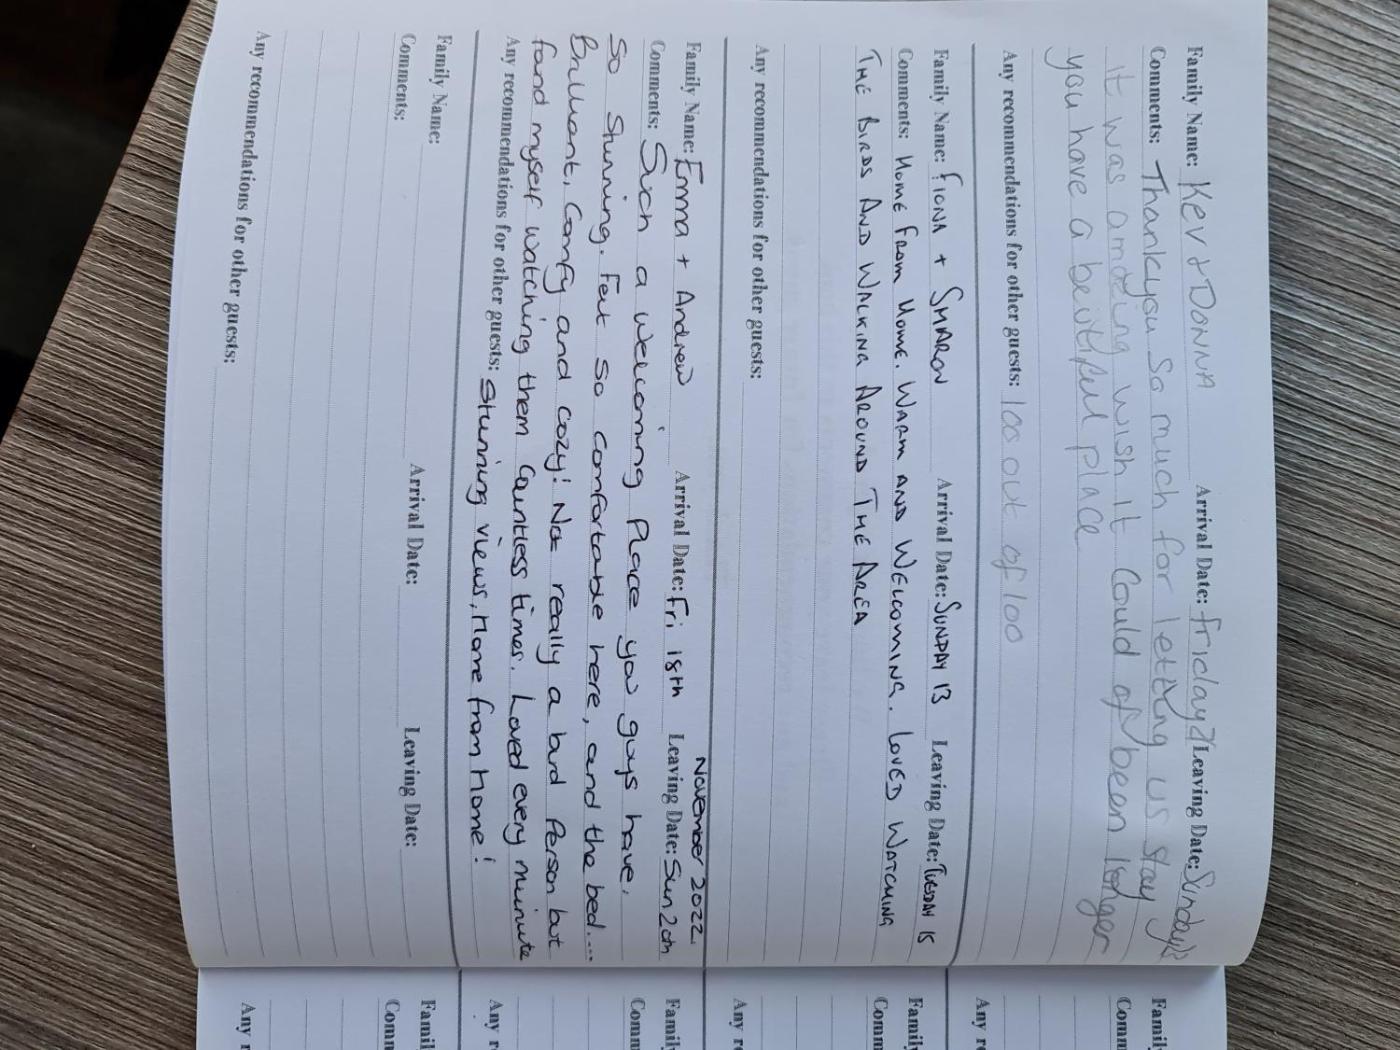 Family Name: Kev + DONNA Arrival Date: friday Leaving Date: Sunday
Comments: Thankyou So much for letting us stay
it was amazing wish it could of bean longer
you have a beutiful place
Any recommendations for other guests: 100 out of 100
Family Name: FIONA + SHARON Arrival Date: SUNDAY 13 Leaving Date: TUESDAY 15
Comments: HOME FROM HOME. WARM AND WELCOMING. LOVED WATCHING
THE BIRDS AND WALKING AROUND THE AREA
Any recommendations for other guests:
November 2022.
Family Name: Emma + Andrew Arrival Date: Fri 18th Leaving Date: Sun 20th
Comments: Such a welcoming Place you guys have,
So Stunning. Felt so comfortable here, and the bed....
Brilliant, Comfy and cozy! Not really a bird Person but
found myself watching them Countless times. Loved every minute
Any recommendations for other guests: Stunning views, Home from Home!
Family Name:
Comments: Arrival Date: Leaving Date:
Any recommendations for other guests:
Famil
Comm
Any r
Family
Comm
Any re
Family
Comm
Any r
Famil
Comm
Any r